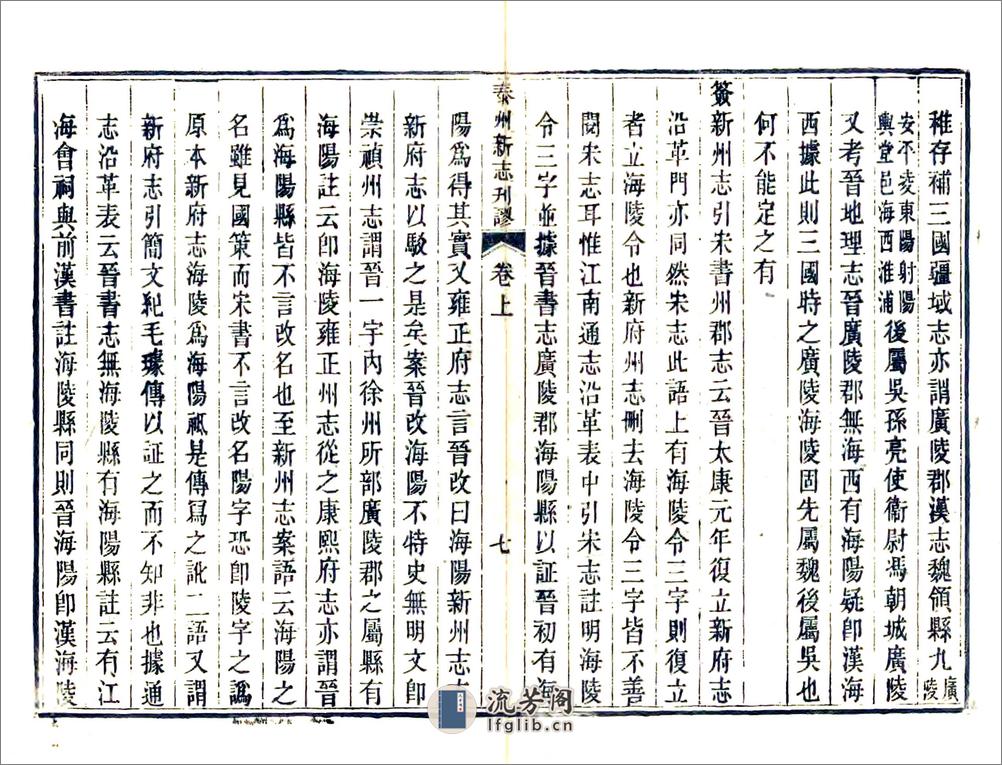 稚存補三國疆域志亦謂廣陵郡漢志魏領縣九廣陵
安平淩東陽射陽輿堂邑海西淮浦後屬吳孫亮使衞尉馮朝城廣陵
又考晉地理志晉廣陵郡無海西有海陽疑卽漢海
西據此則三國時之廣陵海陵固先屬魏後屬吳也
何不能定之有
簽新州志引宋書州郡志云晉太康元年復立新府志
沿革門亦同然宋志此語上有海陵令三字則復立
者立海陵令也新府州志刪去海陵令三字皆不善
閱宋志耳惟江南通志沿革表中引宋志註明海陵
令三字並據晉書志廣陵郡海陽縣以証晉初有海
泰州新志刊謬
卷上
七
陽爲得其實又雍正府志言晉改曰海陽新州志
新府志以駮之是矣案晉改海陽不特史無明文卽
崇禎州志謂晉一字內徐州所部廣陵郡之屬縣有
海陽註云卽海陵雍正州志從之康熙府志亦謂晉
爲海陽縣皆不言改名也至新州志案語云海陽之
名雖見國策而宋書不言改名陽字恐卽陵字之譌
原本新府志海陵爲海陽祗是傳寫之訛二語又謂
新府志引簡文紀毛璩傳以証之而不知非也據通
志沿革表云晉書志無海陵縣有海陽縣註云有江
海會祠與前漢書註海陵縣同則晉海陽卽漢海陵
流芳阁
lfglib.cn